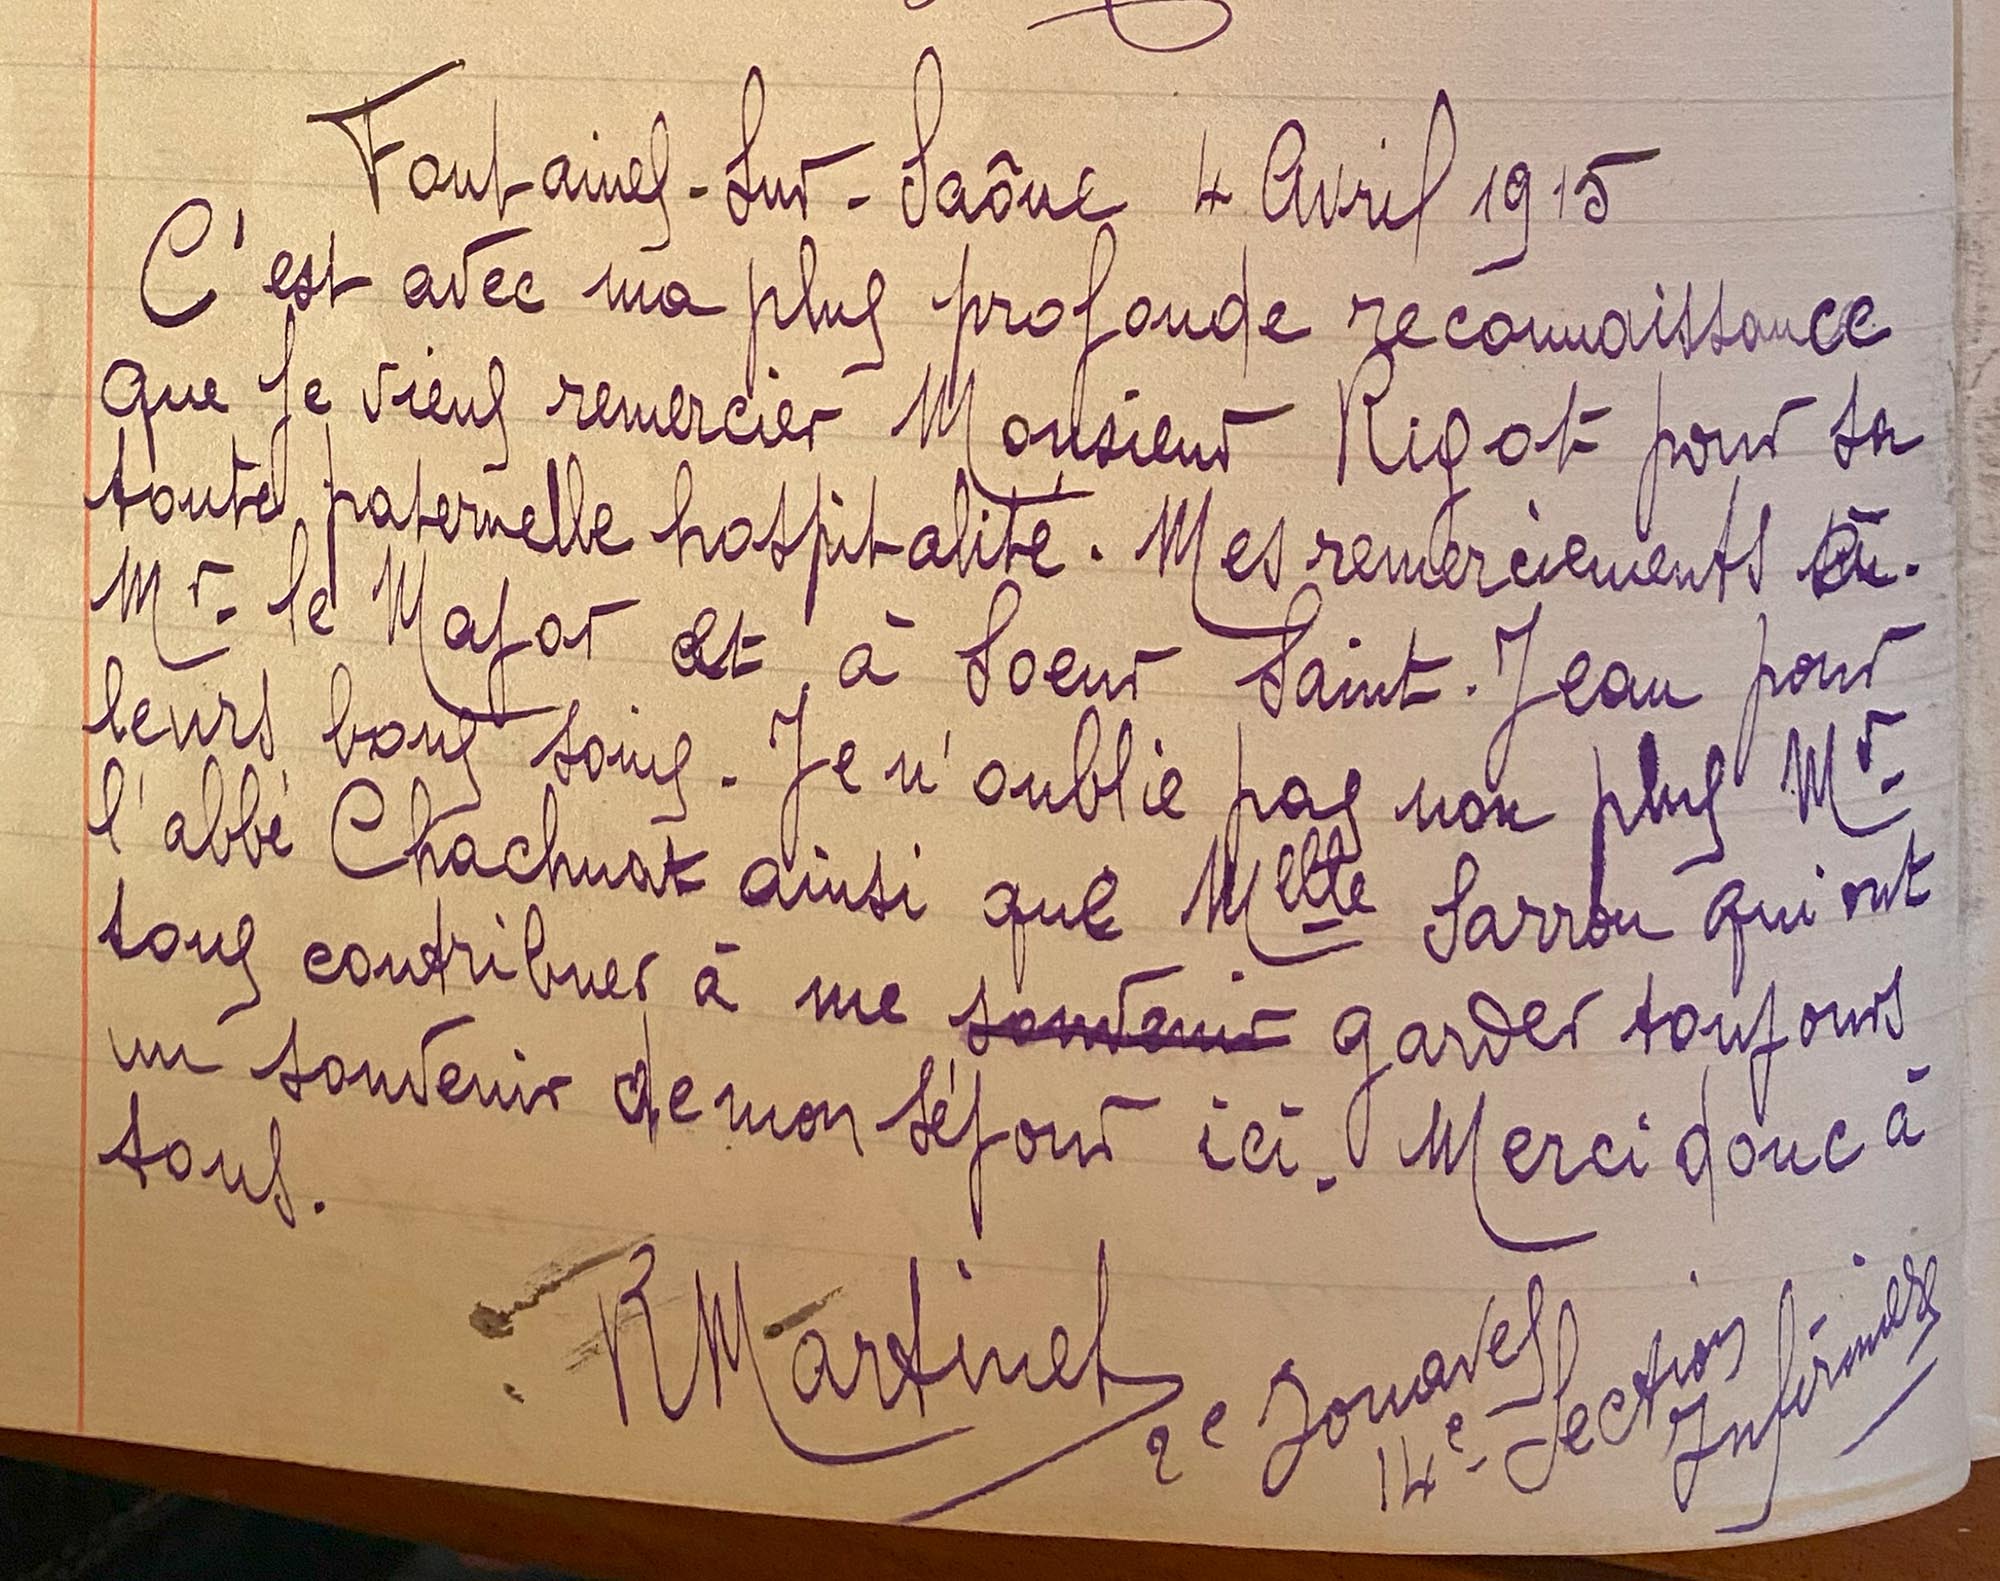 Fontaines-Sur-Saône 4 Avril 1915
C'est avec ma plus profonde reconnaissance
que je viens remercier Monsieur Rigot pour sa
toute paternelle hospitalité. Mes remerciements à
Mr le Major et à Soeur Saint-Jean pour
leurs bons soins. Je n'oublie pas non plus Mr
l'abbé Chachuat ainsi que Melle Sarron qui ont
tous contribuer à me souvenir garder toujours
un souvenir de mon séjour ici. Merci donc à
tous.
R Martinet
2e Zouaves
14e Section
Infirmiers